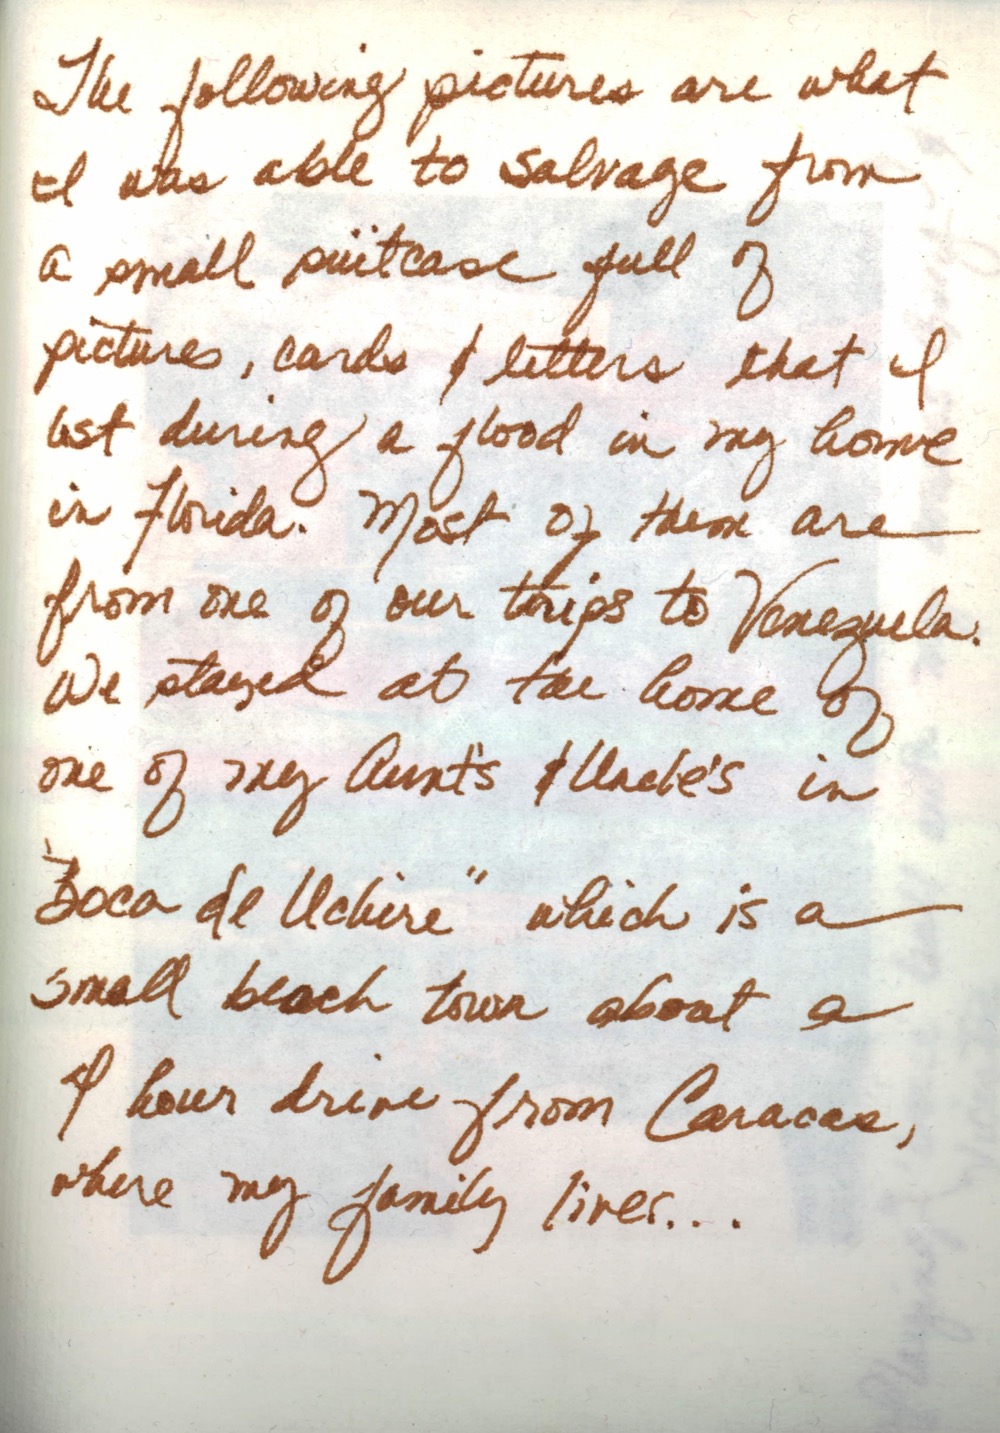 The following pictures are what
I was able to salvage from
a small suitcase full of
pictures, cards & letters that I
lost during a flood in my home
in Florida. Most of them are
from one of our trips to Venezuela.
We stayed at the home of
one of my Aunt's & Uncle's in
"Boca de Uchire" which is a
small beach town about a
4 hour drive from Caracas,
where my family lives....